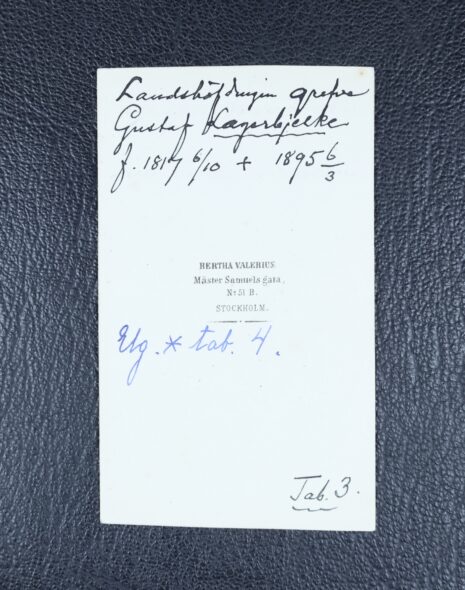 Landshöfdingen grefve
Gustaf Lagerbjelke
f. 1817 6/10 + 1895 6/3
BERTHA VALERIUS
Mäster Samuels gata,
No 51 B.
STOCKHOLM.
Elg. * tab. 4.
Tab. 3.